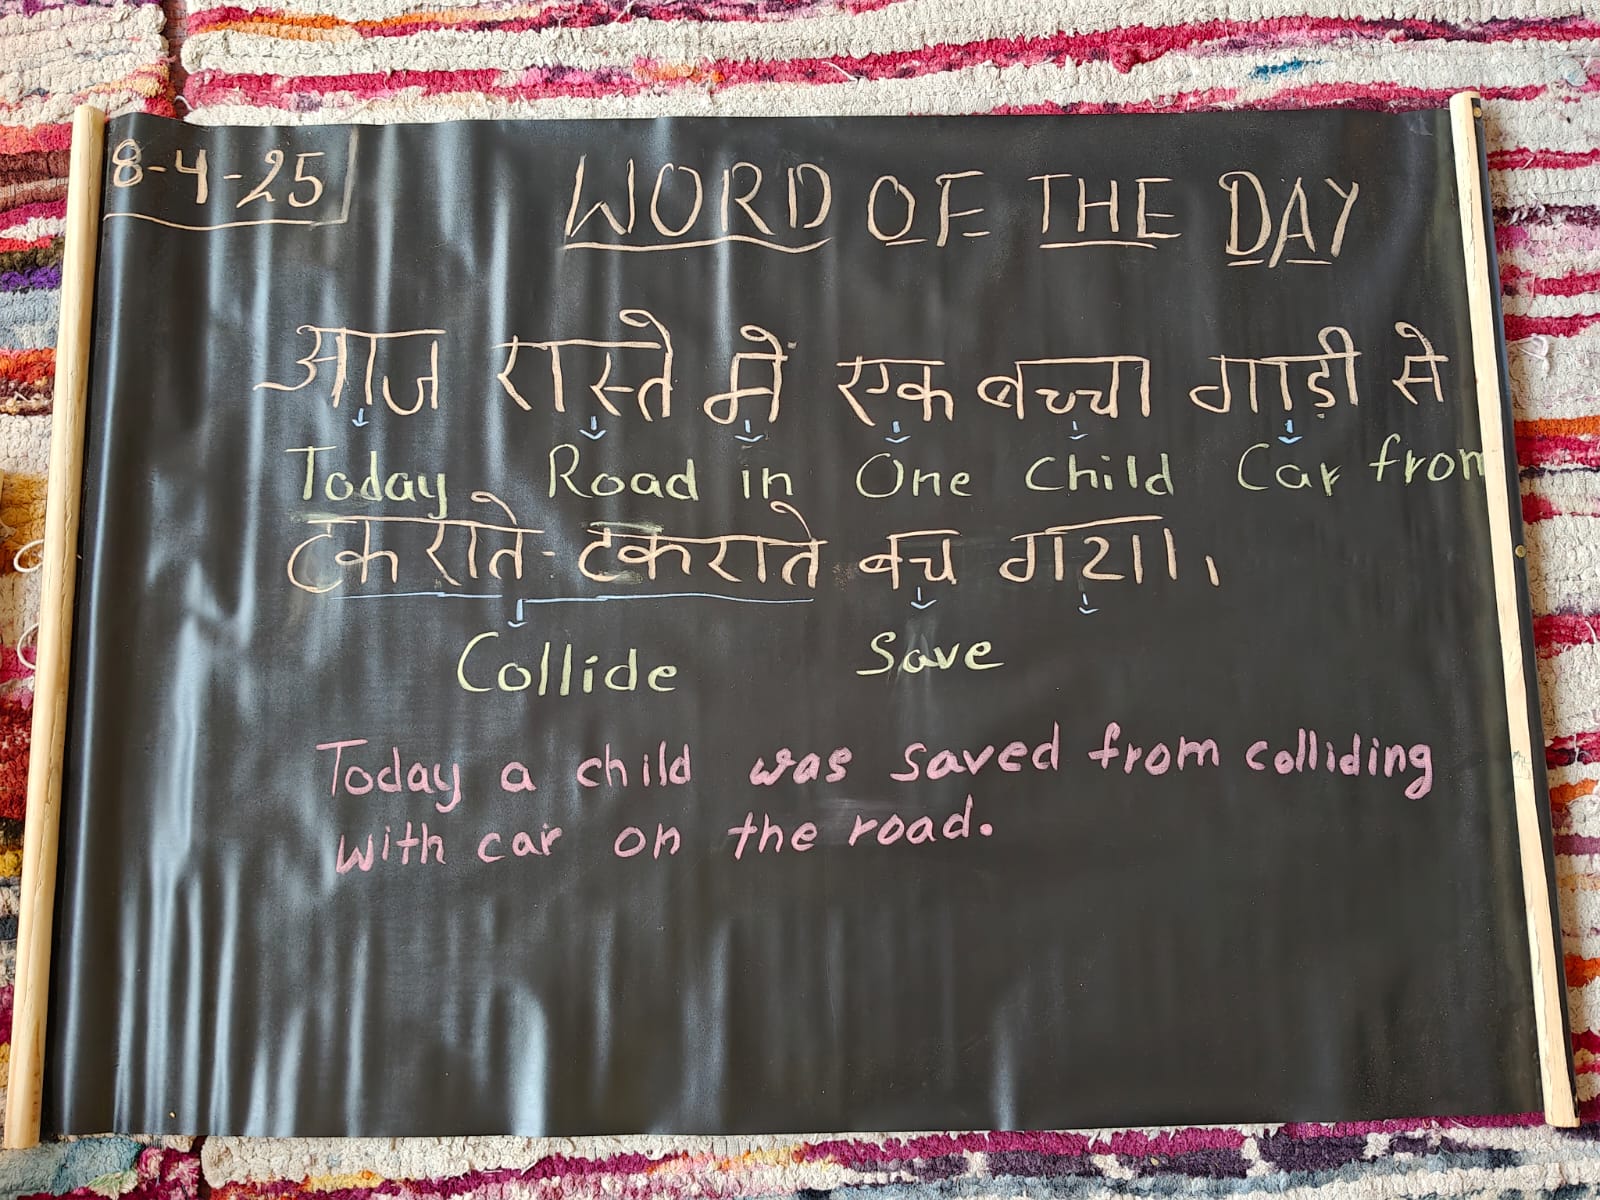 8-4-25
WORD OF THE DAY
आज रास्ते में एक बच्चा गाड़ी से
Today Road in One Child Car from
टकराते-टकराते बच गया।
Collide Save
Today a child was saved from colliding
with car on the road.